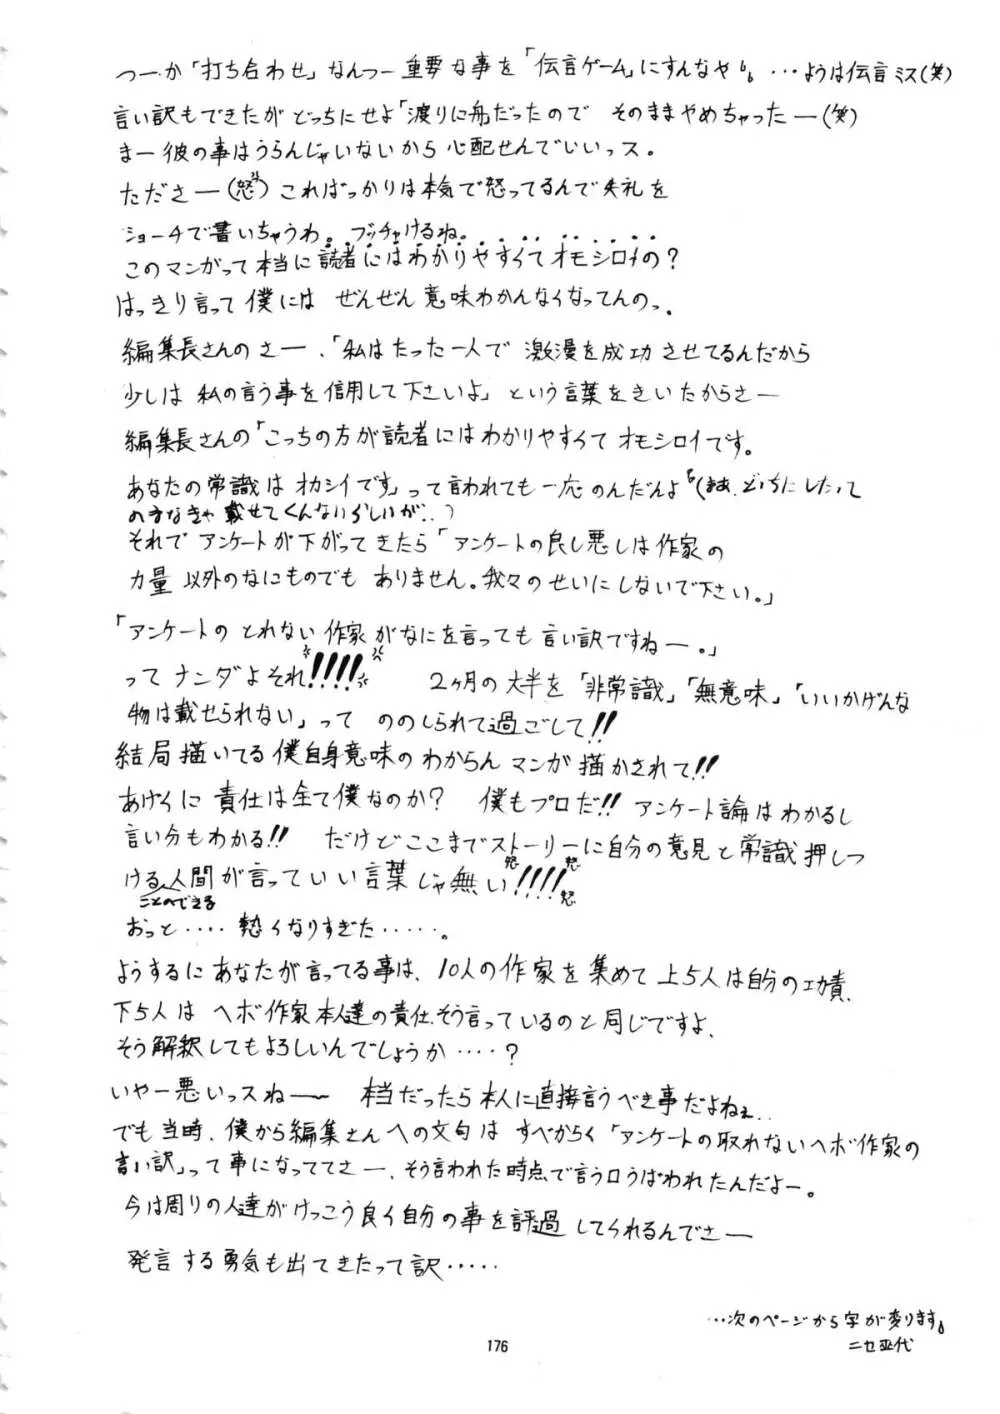 つーか「打ち合わせ」なんつー重要な事を「伝言ゲーム」にすんなや。…ようは伝言ミス(笑)
言い訳もできたがどっちにせよ「渡りに舟」だったので そのままやめちゃったー(笑)
まー彼の事はうらんじゃいないから心配せんでいいっス。
たださー(怒) こればっかりは本気で怒ってるんで失礼を
ショーチで書いちゃうわ。ブッチャけるね。
このマンがって本当に読者にはわかりやすくてオモシロイの?
はっきり言って僕には ぜんぜん意味わかんなくなってんのっ.
編集長さんのさー、「私はたった一人で 激漫を成功させてるんだから
少しは 私の言う事を信用して下さいよ」という言葉をきいたからさー
編集長さんの「こっちの方が読者にはわかりやすくてオモシロイです。
あなたの常識はオカシイです」って言われても一応のんだんよ(まぁ、どっちにしたって
のまなきゃ載せてくんないらしいが..)
それでアンケートが下がってきたら「アンケートの良し悪しは作家の
力量以外のなにものでもありません。我々のせいにしないで下さい。」
「アンケートのとれない作家がなにを言っても言い訳ですねー。」
ってナンダよそれ!!!! 2ヶ月の大半を「非常識」「無意味」「いいかげんな
物は載せられない」って ののしられて過ごして!!
結局描いてる僕自身意味のわからんマンが描かされて!!
あげくに責任は全て僕なのか? 僕もプロだ!! アンケート論はわかるし
言い分もわかる!! だけどここまでストーリーに自分の意見と常識押しつ
ける人間が言っていい言葉じゃ無い!!!! 怒 怒 怒
ことのできる
おっと‥‥熱くなりすぎた‥‥‥。
ようするにあなたが言ってる事は、10人の作家を集めて上5人は自分の功責、
下5人はヘボ作家本人達の責任、そう言っているのと同じですよ、
そう解釈してもよろしいんでしょうか‥‥?
いやー悪いっスねー〜 本当だったら本人に直接言うべき事だよねぇ..
でも当時、僕から編集さんへの文句は すべからく「アンケートの取れないヘボ作家の
言い訳」って事になっててさー、そう言われた時点で言う口うばわれたんだよー。
今は周りの人達がけっこう良く自分の事を評過してくれるんでさー
発言する勇気も出てきたって訳‥‥‥
…次のページから字が変ります。
ニセ亜代
176